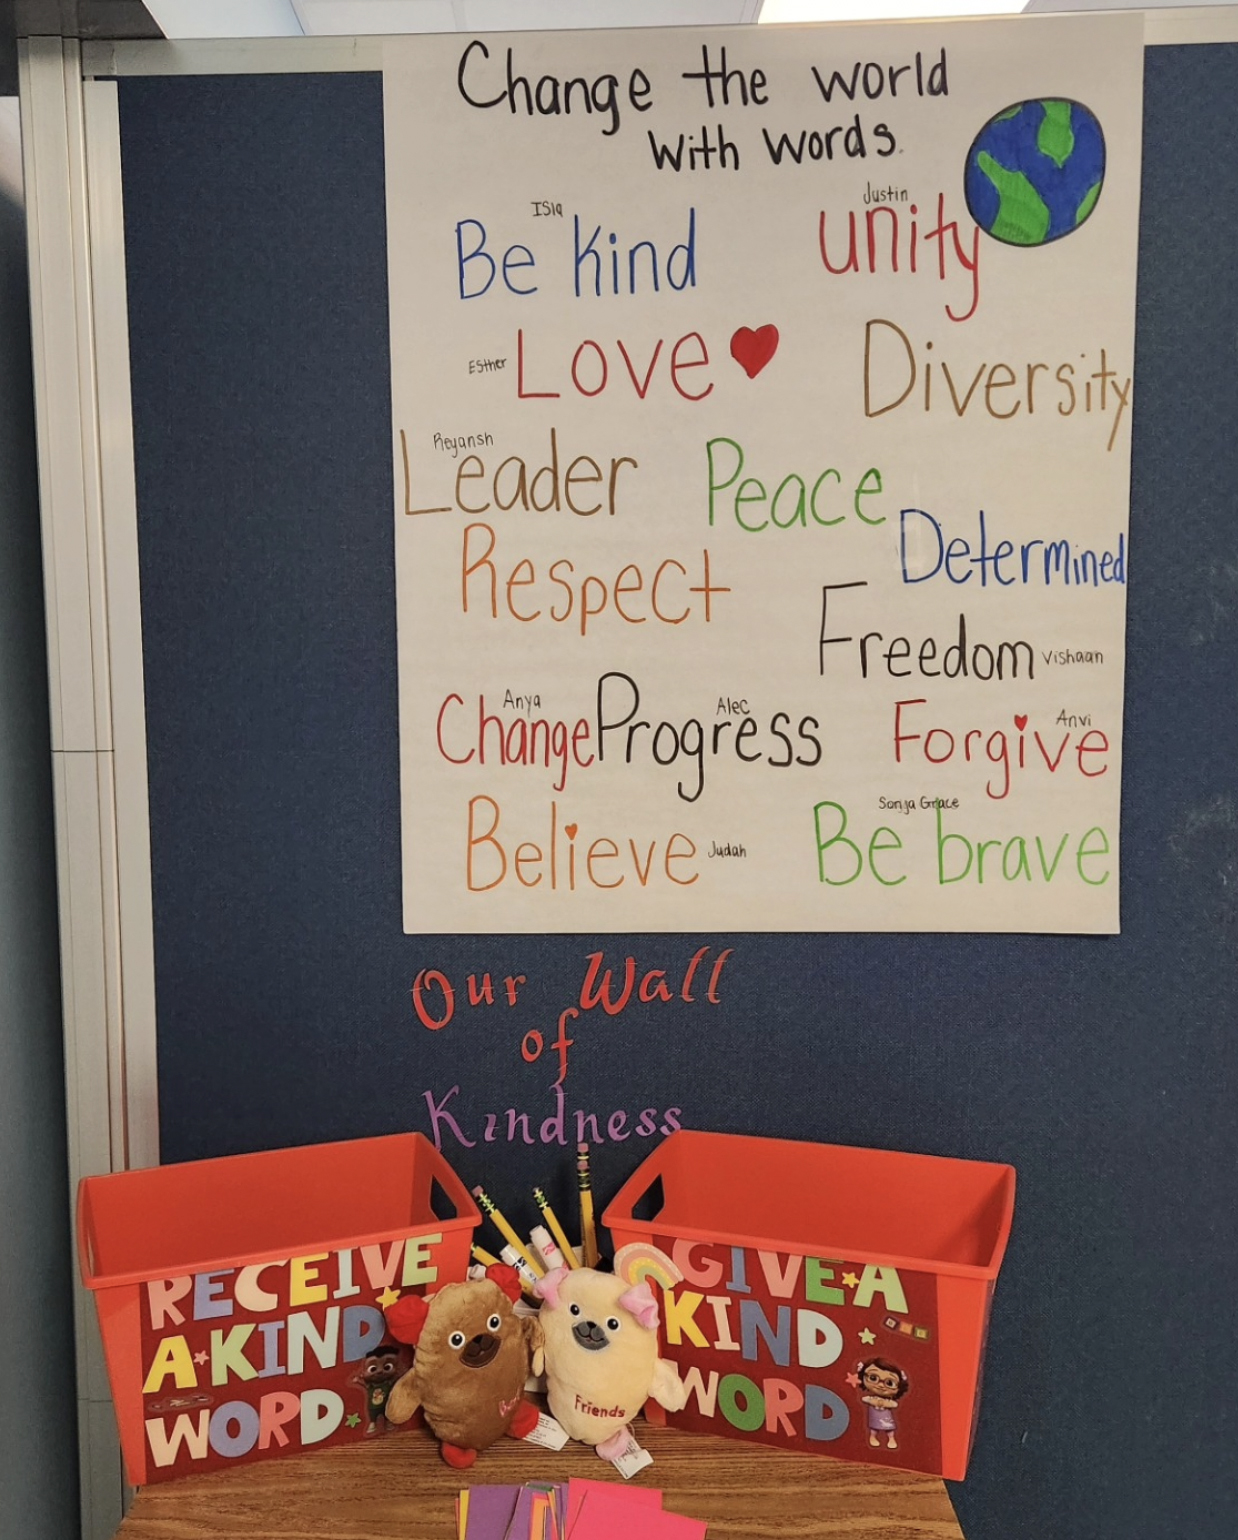 Change the world
with words.
Isla
Be kind
Justin
unity
Esther Love
Diversity
Reyansh
Leader
Peace
Respect
Determined
Freedom Vishaan
Anya
Change
Alec
Progress
Anvi
Forgive
Believe Judah
Sonja Grace
Be brave
Our Wall
of
Kindness
RECEIVE
A KIND
WORD
GIVE A
KIND
WORD
Friends